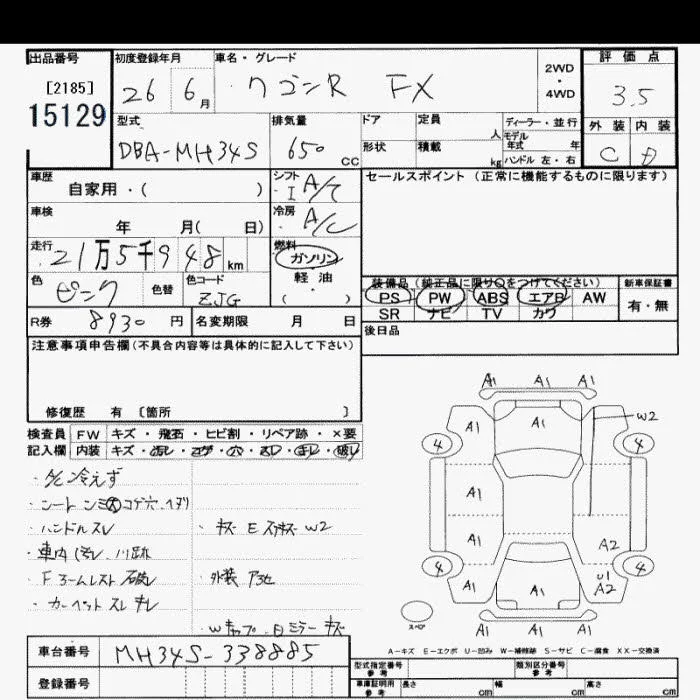 出品番号
[2185]
15129
初度登録年月
26 6月
車名・グレード
ワゴンR FX
2WD・4WD
評価点
3.5
外装 内装
C D
型式
DBA-MH34S
排気量
650 cc
ドア
形状
定員 人
積載 kg
ディーラー・並行
モデル年式 年
ハンドル 左・右
車歴
自家用・( )
シフト
I A/T
セールスポイント(正常に機能するものに限ります)
車検
年 月( 日)
冷房
A/C
走行
21万5千948km
燃料
ガソリン
軽油
( )
色
ピンク
色替
色コード
ZJG
装備品(純正品に限り○をつけてください)
PS PW ABS エアB AW
SR ナビ TV カワ
新車保証書
有・無
R券 8930円
名変期限 月 日
後日品
注意事項申告欄(不具合内容等は具体的に記入して下さい)
修復歴 有 〔箇所 〕
検査員記入欄
FW キズ・飛石・ヒビ割・リペア跡・×要
内装 キズ・汚レ・コゲ・穴・スレ・キレ・破レ
・A/C冷えず
・シート シミ大 コゲ穴 ヘタリ
・ハンドルスレ
・キズ E スリキズ W2
・車内汚レ
・外装
・カーペット スレ キレ
ミラー キズ
A1 A1 A1
A1 A1 W2
4 4
A1
A1 A2
4 4
A1 A1 U1 A2
スペア
A1 A1 A1
A-キズ E-エクボ U-凹み W-補修跡 S-サビ C-腐食 XX-交換済
車台番号
MH34S-338885
登録番号
型式指定番号 参考
類別区分番号 参考
車庫証明用 参考
長さ cm
幅 cm
高さ cm